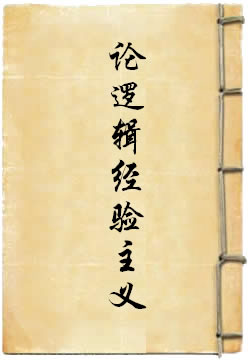 论逻辑经验主义